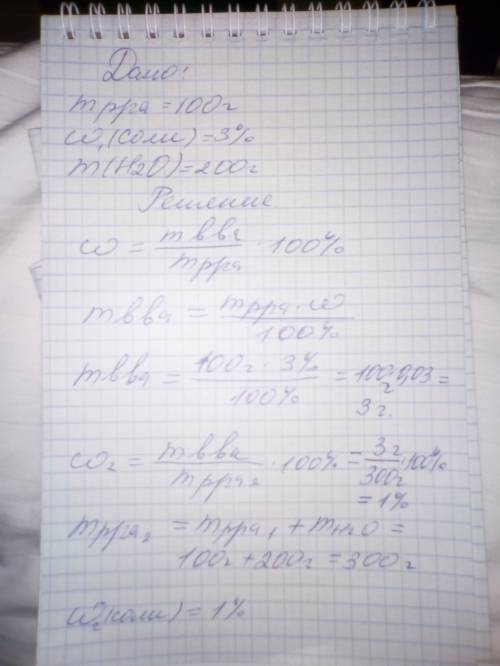 Дано:
m р-ра = 100г
ω₁(соли) = 3%
m(H2O) = 200г
Решение
ω = m в-ва / m р-ра · 100%
m в-ва = m р-ра · ω / 100%
m в-ва = 100г · 3% / 100% = 100г · 0,03 =
3г.
ω₂ = m в-ва / m р-ра₂ · 100% = 3г / 300г · 100%
= 1%
m р-ра₂ = m р-ра₁ + m H2O =
100г + 200г = 300г
ω₂(соли) = 1%